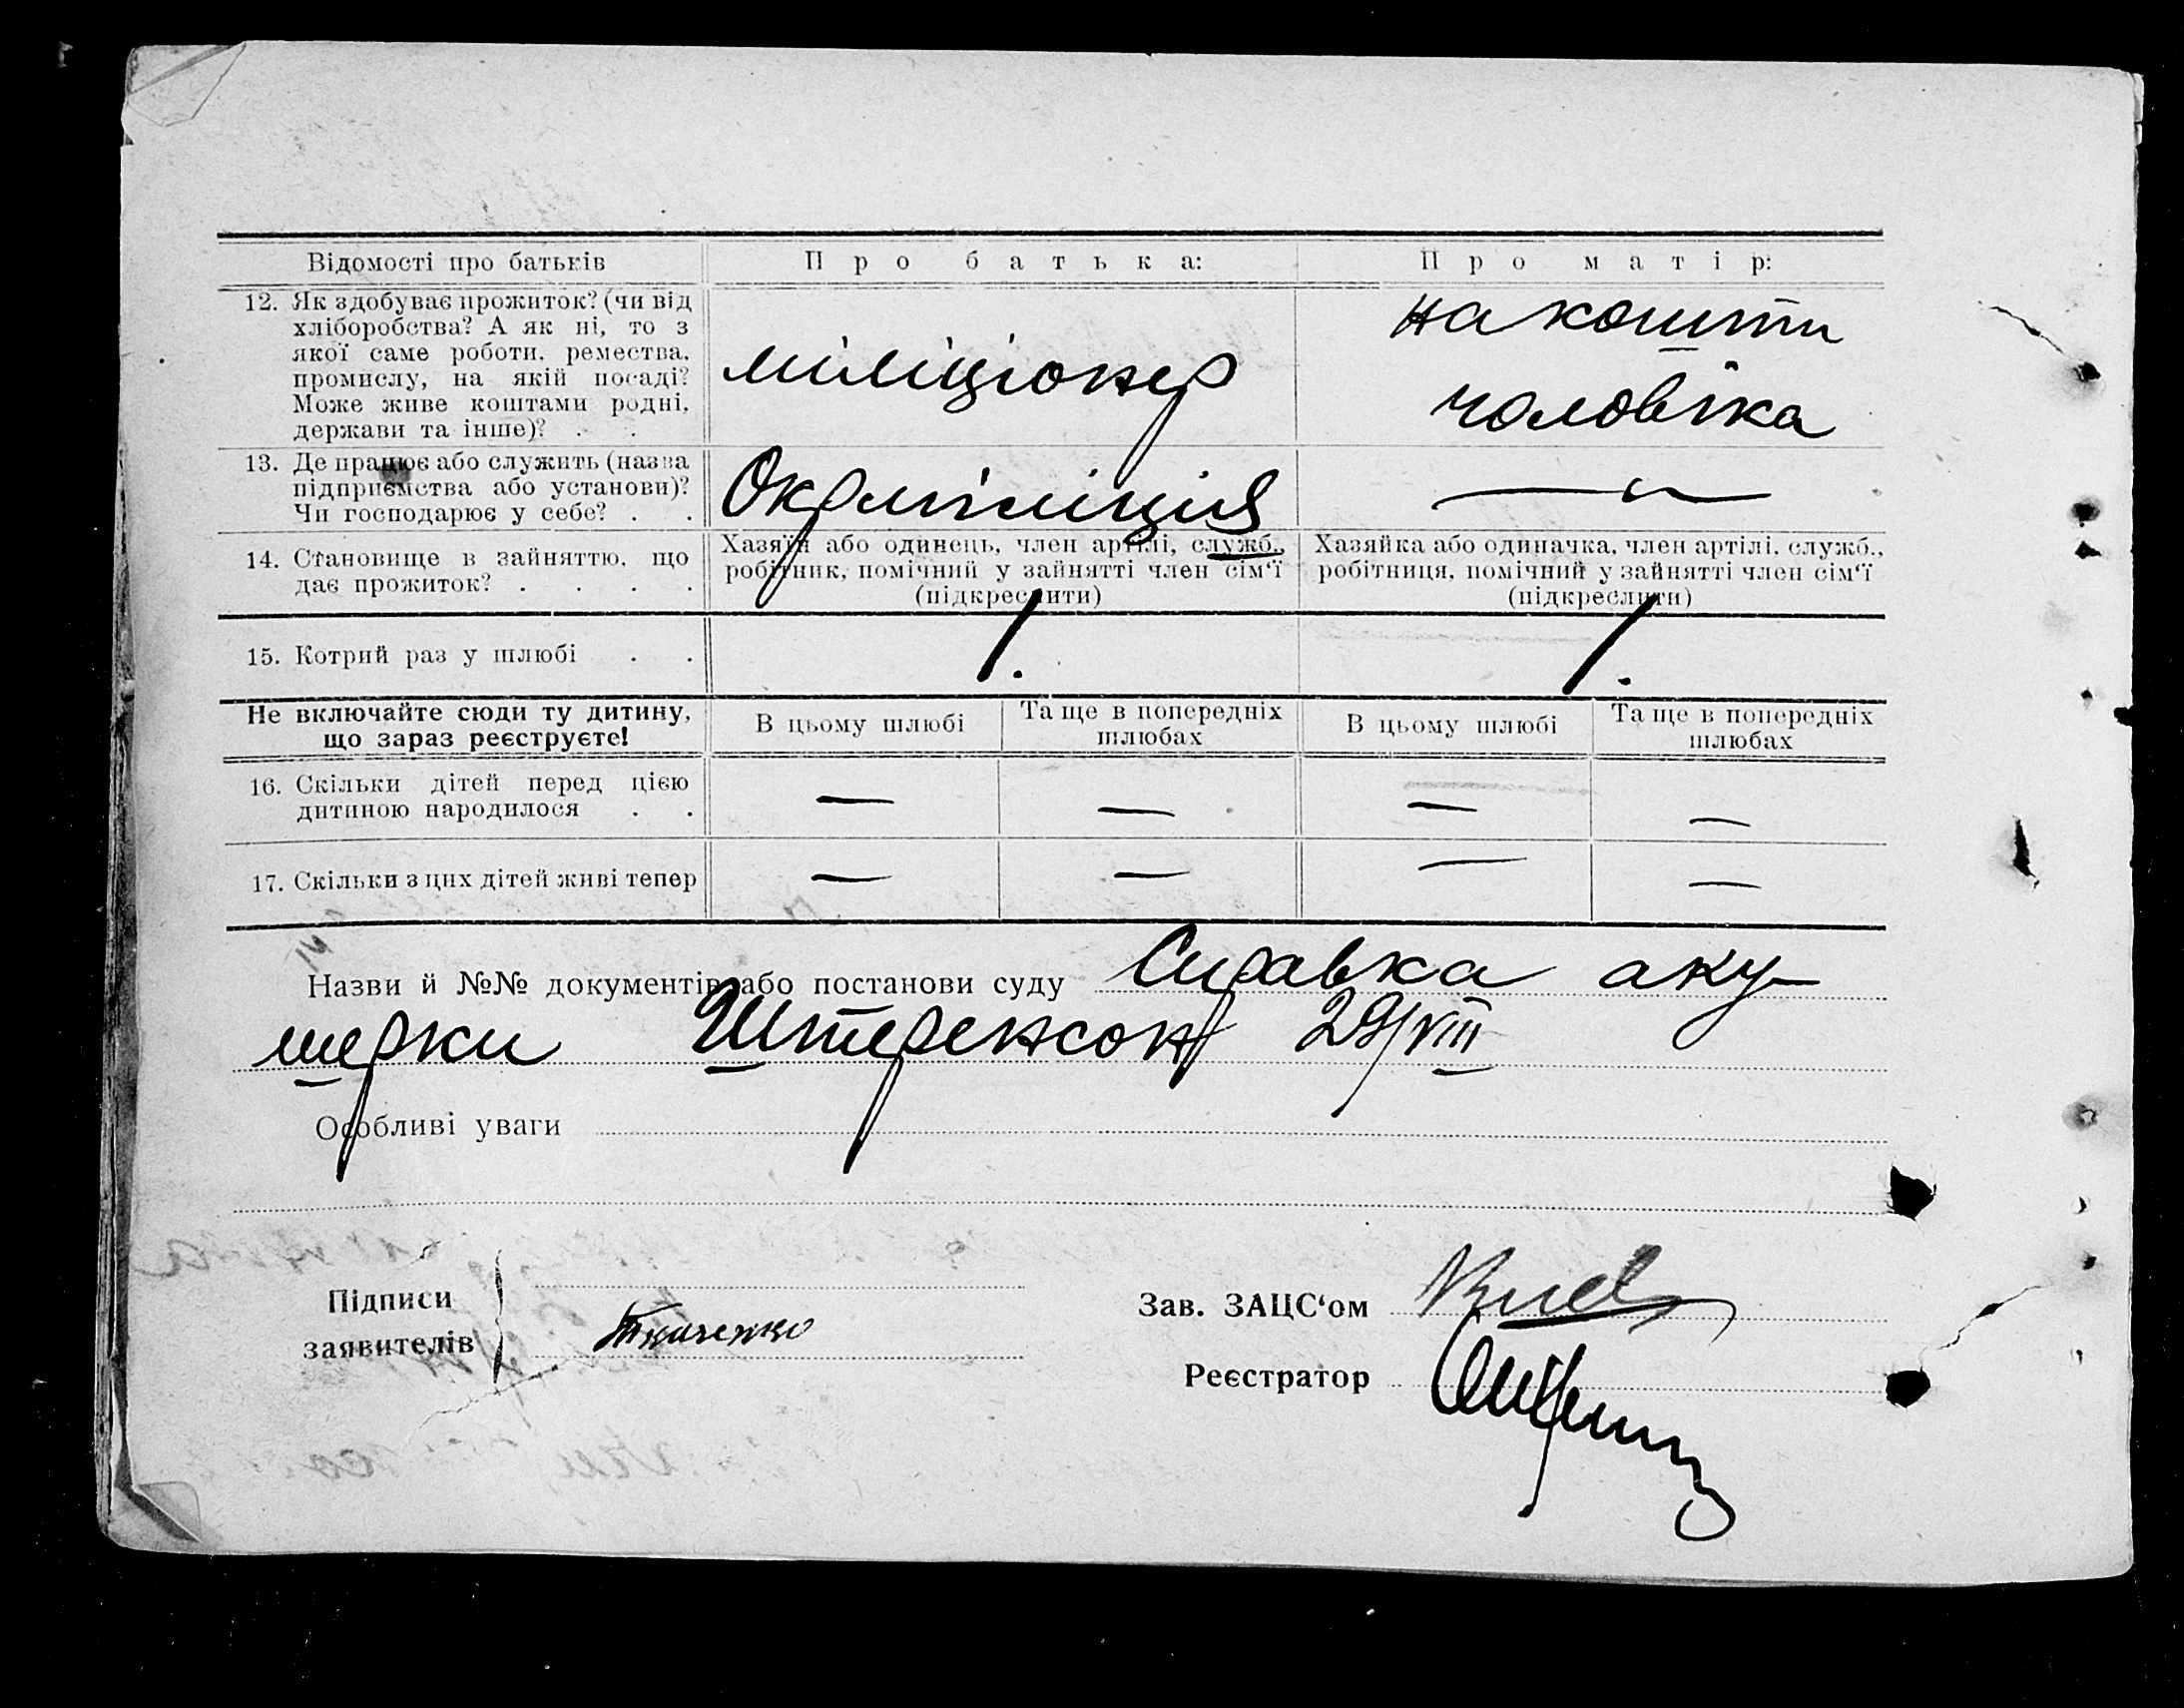 Відомості про батьків
Про батька:
Про матір:
12. Як здобуває прожиток? (чи від
хліборобства? А як ні, то з
якої саме роботи, ремества,
промислу, на якій посаді?
Може живе коштами родні,
держави та інше)? . .
міліціонер
на кошти
чоловіка
13. Де працює або служить (назва
підприємства або установи)?
Чи господарює у себе? . .
Окрміліція
—
14. Становище в зайняттю, що
дає прожиток? . . . .
Хазяїн або одинець, член артілі, служб.,
робітник, помічний у зайнятті член сім‘ї
(підкреслити)
Хазяйка або одиначка, член артілі, служб.,
робітниця, помічний у зайнятті член сім‘ї
(підкреслити)
15. Котрий раз у шлюбі . .
1.
1.
Не включайте сюди ту дитину,
що зараз реєструєте!
В цьому шлюбі
Та ще в попередніх
шлюбах
В цьому шлюбі
Та ще в попередніх
шлюбах
16. Скільки дітей перед цією
дитиною народилося . .
— — — —
17. Скільки з цих дітей живі тепер
— — — —
Назви й №№ документів або постанови суду Справка аку-
шерки Штеренсон 29/VIII
Особливі уваги
Підписи
заявителів
Ткаченко
Зав. ЗАЦС‘ом
Реєстратор